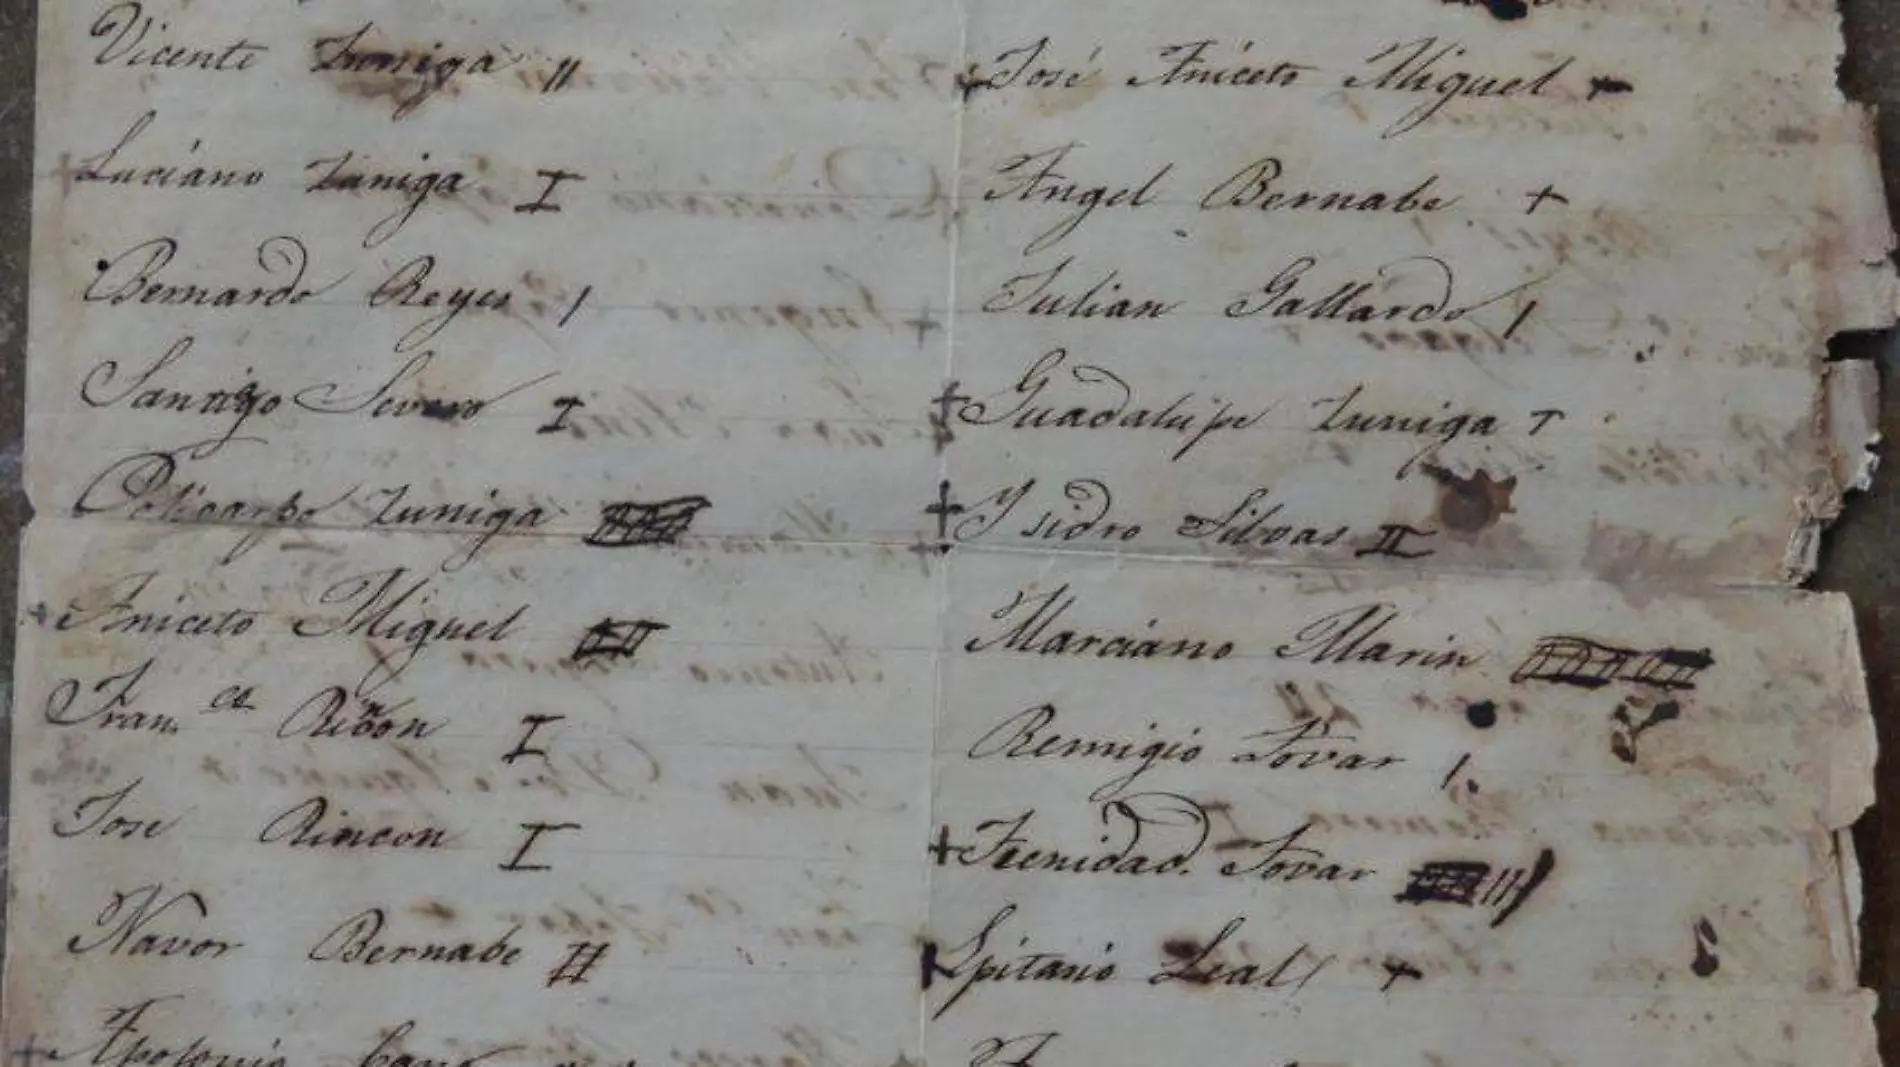 Vicente Zuniga II
Luciano Zuniga I
Bernardo Reyes /
Santiago Severo I
Policarpo Zuniga
+ Aniceto Miguel
Fran.ca Rincon I
Jose Rincon I
Navor Bernabe II
+ Apolonio Cano
+ José Aniceto Miguel +
Angel Bernabe +
Julian Gallardo /
+ Guadalupe Zuniga +
+ Ysidro Silvas II
Marciano Marin
Remigio Tovar /.
+ Trenidad. Tovar III
Epitasio Leal +